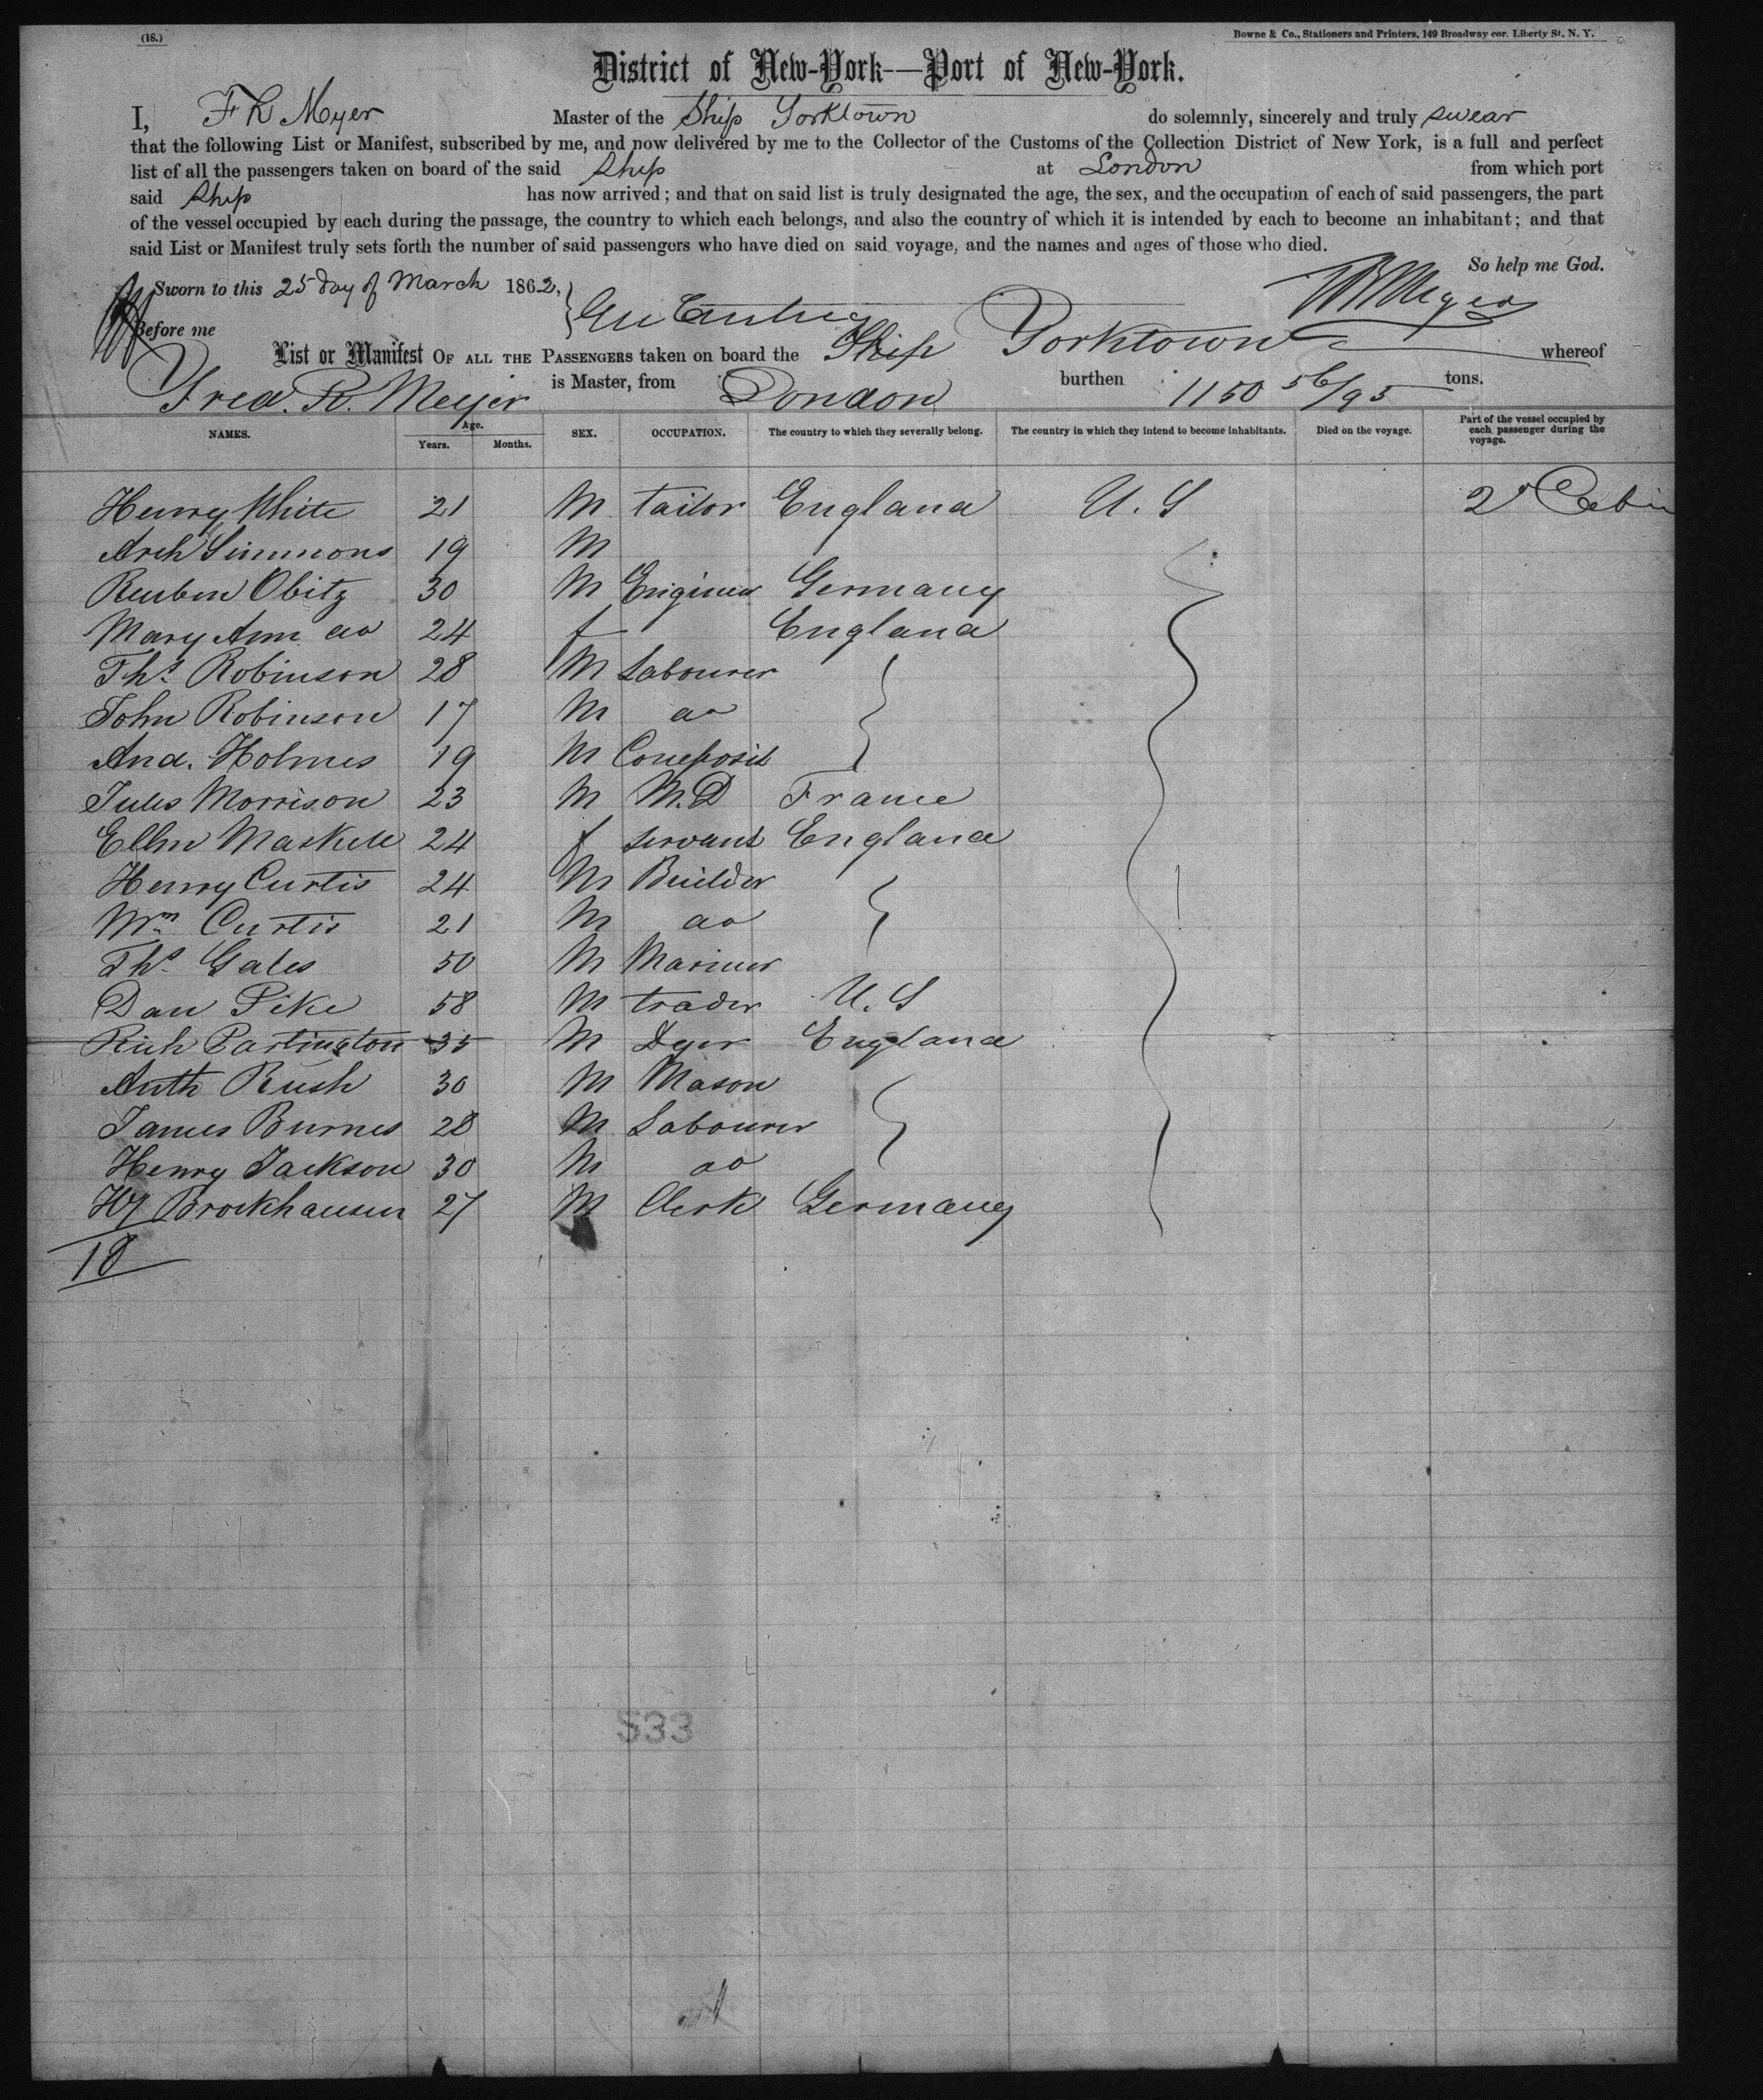 (18.)
Bowne & Co., Stationers and Printers, 149 Broadway cor. Liberty St. N. Y.
District of New-York—Port of New-York.
I, F R Meyer Master of the Ship Yorktown do solemnly, sincerely and truly swear
that the following List or Manifest, subscribed by me, and now delivered by me to the Collector of the Customs of the Collection District of New York, is a full and perfect
list of all the passengers taken on board of the said Ship at London from which port
said Ship has now arrived; and that on said list is truly designated the age, the sex, and the occupation of each of said passengers, the part
of the vessel occupied by each during the passage, the country to which each belongs, and also the country of which it is intended by each to become an inhabitant; and that
said List or Manifest truly sets forth the number of said passengers who have died on said voyage, and the names and ages of those who died.
So help me God.
Sworn to this 25 day of March 1862,
Before me
List or Manifest OF ALL THE PASSENGERS taken on board the Ship Yorktown whereof
Fred. R. Meyer is Master, from London burthen 1150 56/95 tons.
NAMES. Age. Years. Months. SEX. OCCUPATION. The country to which they severally belong. The country in which they intend to become inhabitants. Died on the voyage. Part of the vessel occupied by each passenger during the voyage.
Henry White 21 M tailor England U.S 2d Cabin
Arch Simmons 19 M
Reuben Obitz 30 M Engineer Germany
Mary Ann do 24 f England
Ths Robinson 28 M Labourer
John Robinson 17 M do
And. Holmes 19 M Composit
Jules Morrison 23 M M.D France
Ellen Maskell 24 f servant England
Henry Curtis 24 M Builder
Wm Curtis 21 M do
Ths Gales 50 M Mariner
Dan Pike 58 M trader U.S
Rich Partington 35 M Dyer England
Anth Rush 30 M Mason
James Burnes 28 M Labourer
Henry Jackson 30 M do
Hy Brockhausen 27 M Clerk Germany
18
533